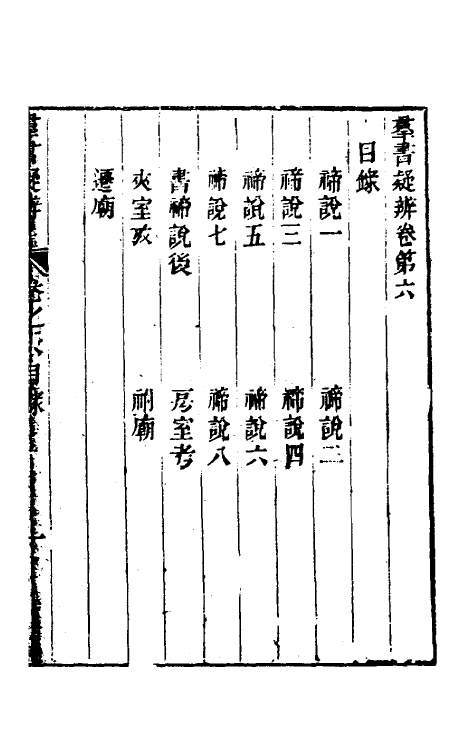 羣書疑辨卷第六
目錄
禘說一　禘說二
禘說三　禘說四
禘說五　禘說六
禘說七　禘說八
書禘說後　房室考
夾室攷　祔廟
遷廟
羣書疑辨　卷之六目錄